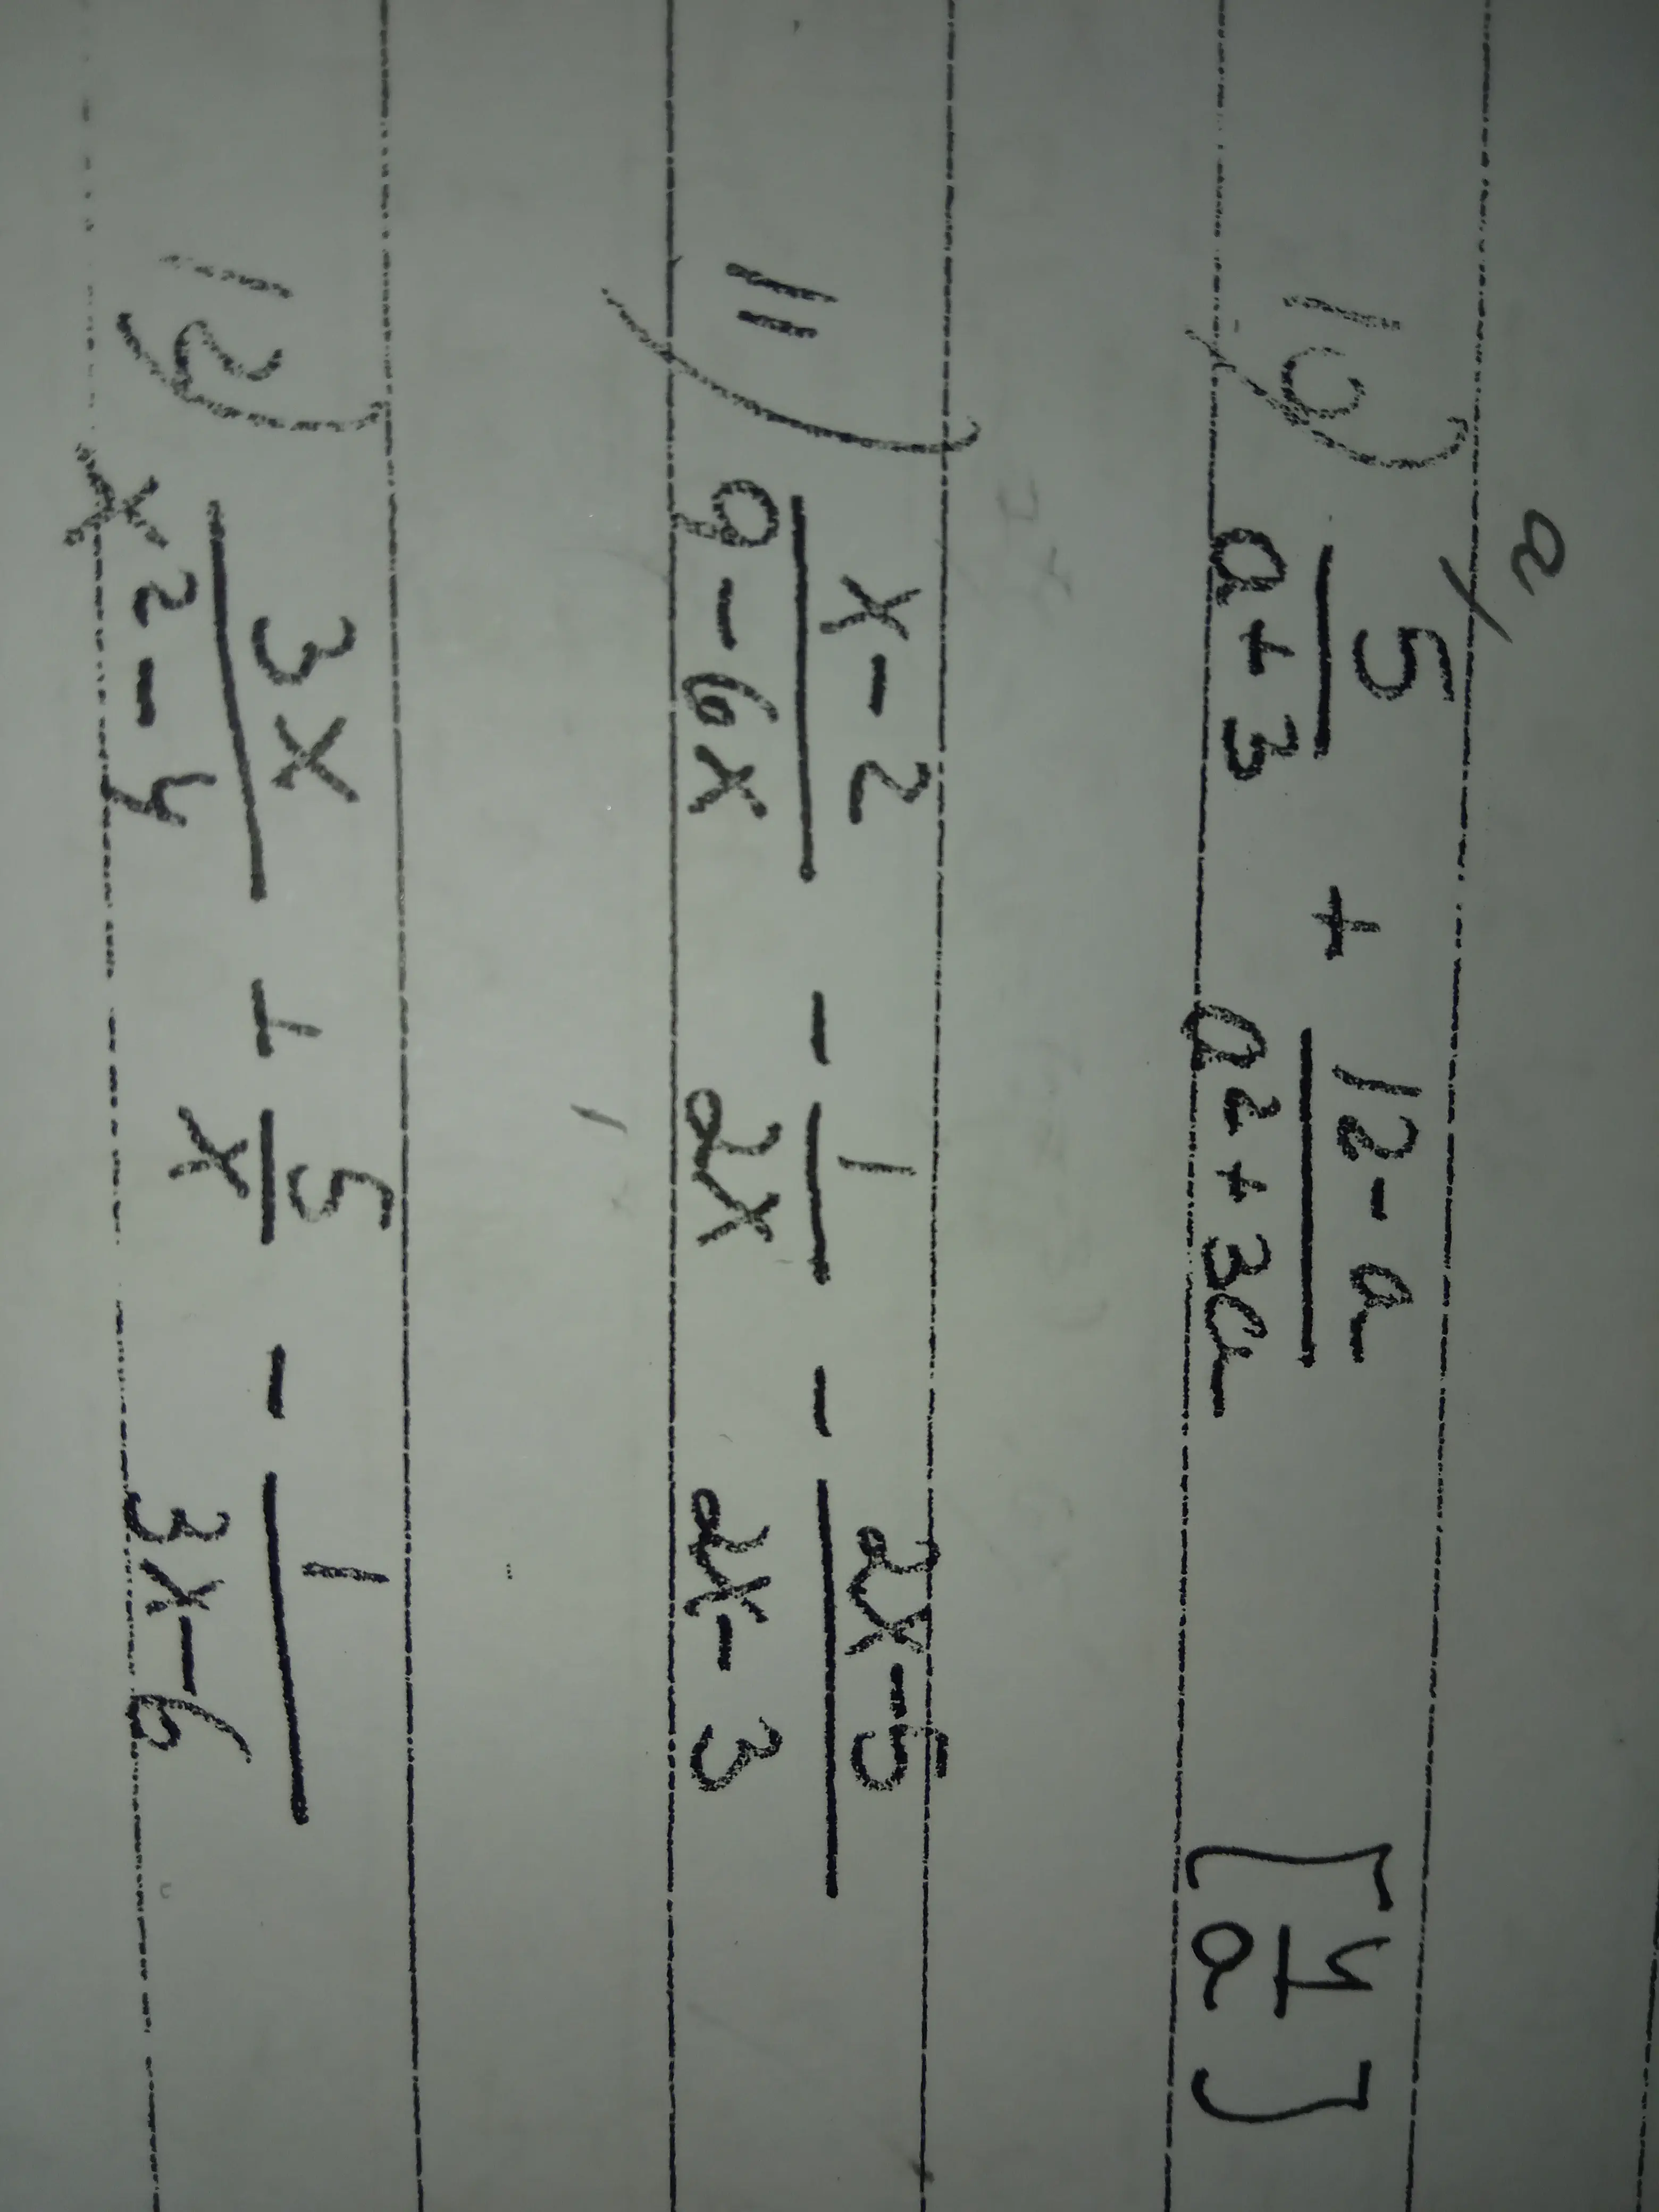 a/
10) 5/(a+3) + (12-a)/(a²+3a) [4/a]
11) (x-2)/(9-6x) - 1/(2x) - (2x-5)/(2x-3)
12) 3x/(x²-4) + 5/x - 1/(3x-6)